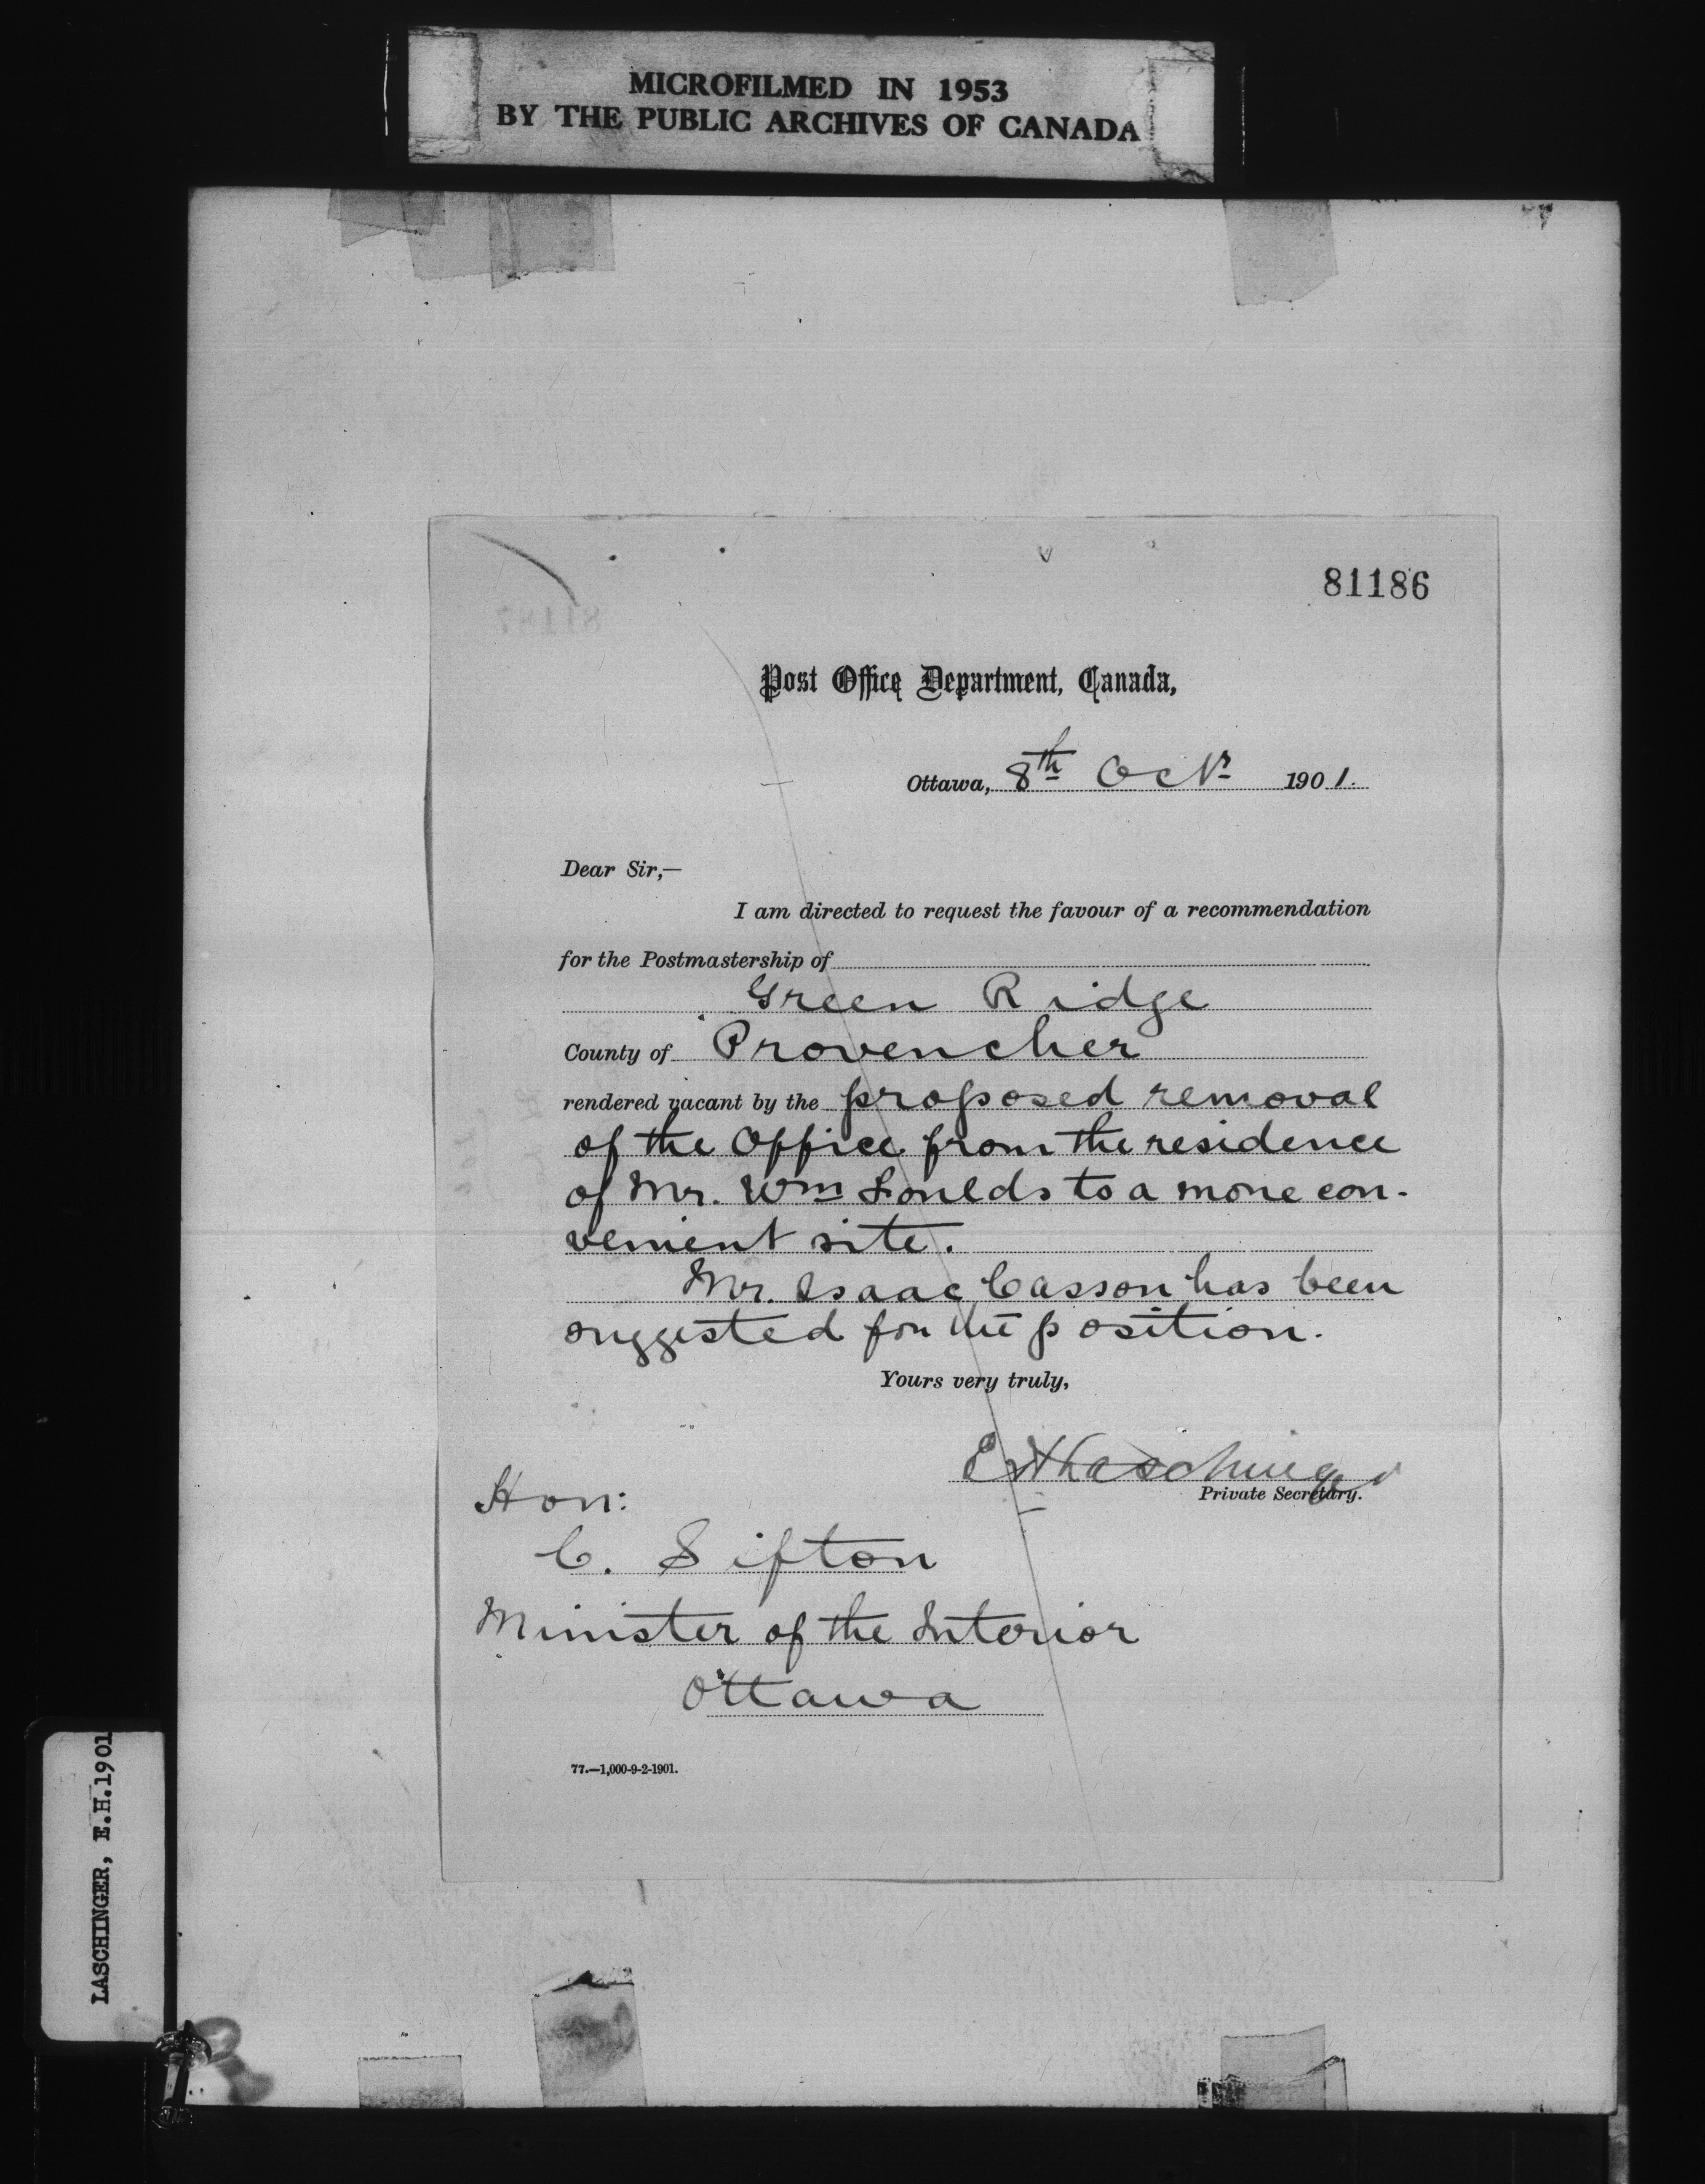 MICROFILMED IN 1953
BY THE PUBLIC ARCHIVES OF CANADA
81186
81187
Post Office Department, Canada,
Ottawa, 8th Octr 1901.
Dear Sir,—
I am directed to request the favour of a recommendation
for the Postmastership of
Green Ridge
County of Provencher
rendered vacant by the proposed removal
of the Office from the residence
of Mr. Wm Foulds to a more con-
venient site.
Mr. Isaac Casson has been
suggested for the position.
Yours very truly,
E H Laschinger
Private Secretary.
Hon:
C. Sifton
Minister of the Interior
Ottawa
77.—1,000-9-2-1901.
LASCHINGER, E.H.1901